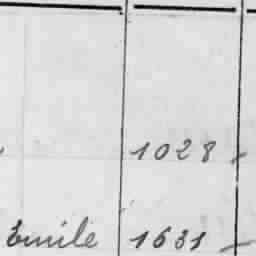 1028 -
Emile 1631 -